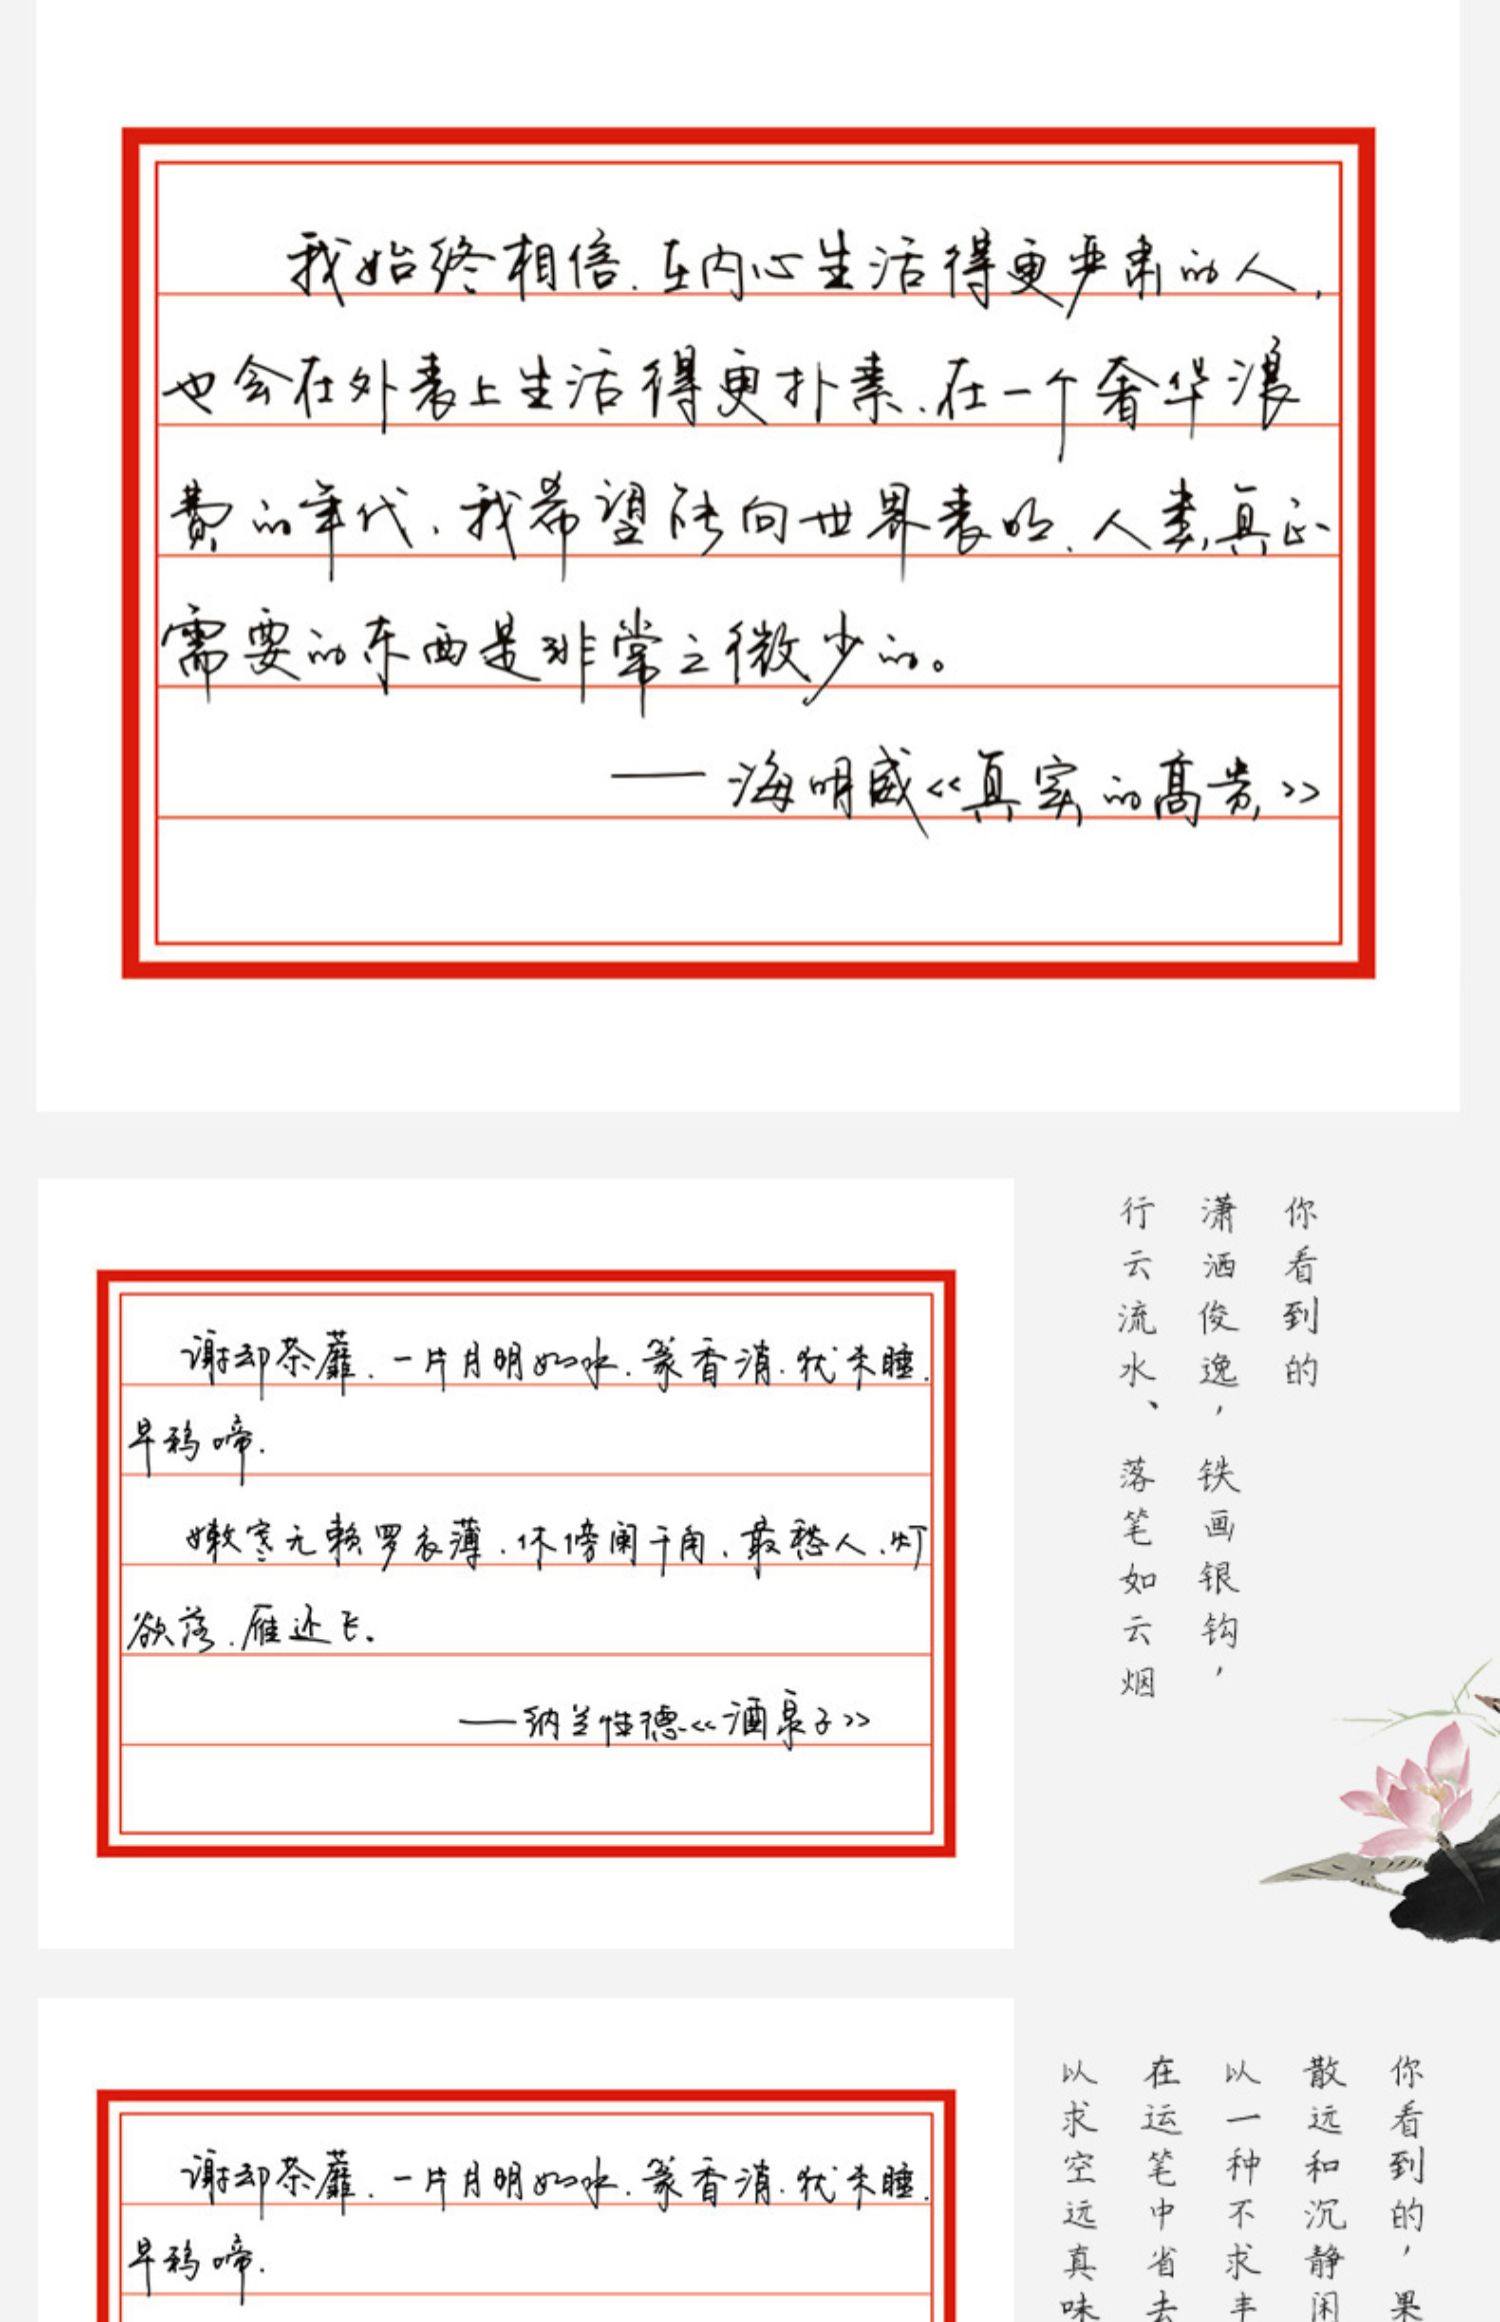 我始终相信.在内心生活得更严肃的人,
也会在外表上生活得更朴素.在一个奢华浪
费的年代,我希望能向世界表明.人类真正
需要的东西是非常之微少的。
——海明威《真实的高贵》
谢却荼蘼.一片月明如水.篆香消.犹未睡.
早鸦啼.
嫩寒无赖罗衣薄.休傍阑干角.最愁人.灯
欲落.雁还飞。
——纳兰性德《酒泉子》
你看到的
潇洒俊逸,铁画银钩,
行云流水、落笔如云烟
谢却荼蘼.一片月明如水.篆香消.犹未睡.
早鸦啼.
你看到的,果
散远和沉静闲
以一种不求丰
在运笔中省去
以求空远真味